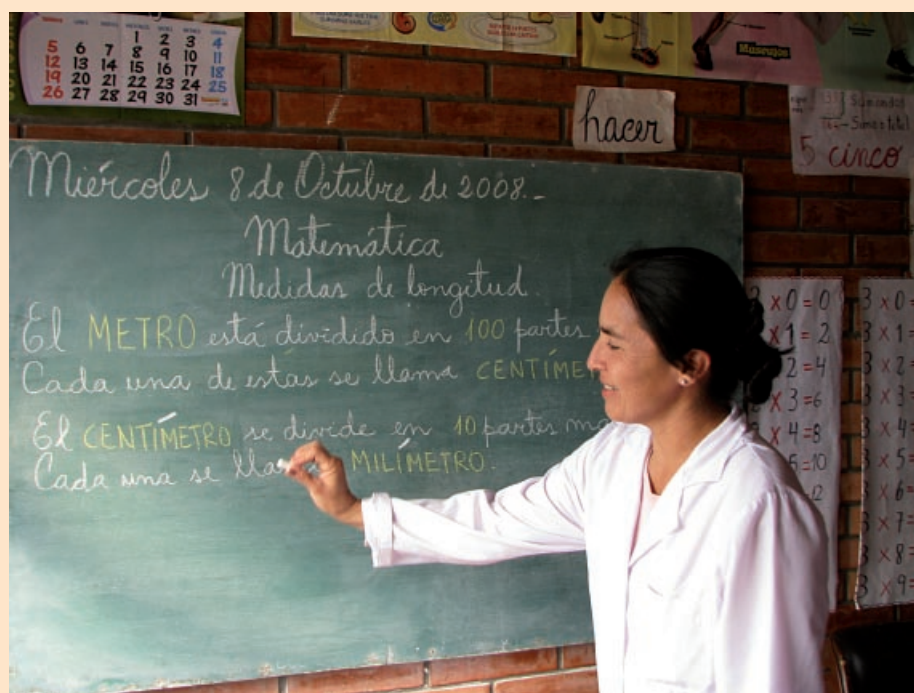 1 2 3 4
5 6 7 8 9 10 11
12 13 14 15 16 17 18
19 20 21 22 23 24 25
26 27 28 29 30 31
Musculos
hacer
Sumandos
Suma o total
5 cinco
Miércoles 8 de Octubre de 2008.-
Matemática
Medidas de longitud.
El METRO está dividido en 100 partes
Cada una de estas se llama CENTÍME
El CENTÍMETRO se divide en 10 partes
Cada una se lla MILÍMETRO.
x 0 = 0
x 1 = 2
2 = 4
x 3 = 6
x 4 = 8
5 = 10
12
3 x 0 =
3 x 1 =
3 x 2 =
3 x 3
3 x 4 =
3 x 5 =
3 x 6 =
3 x 7 =
3 x 8 =
3 x 9 =